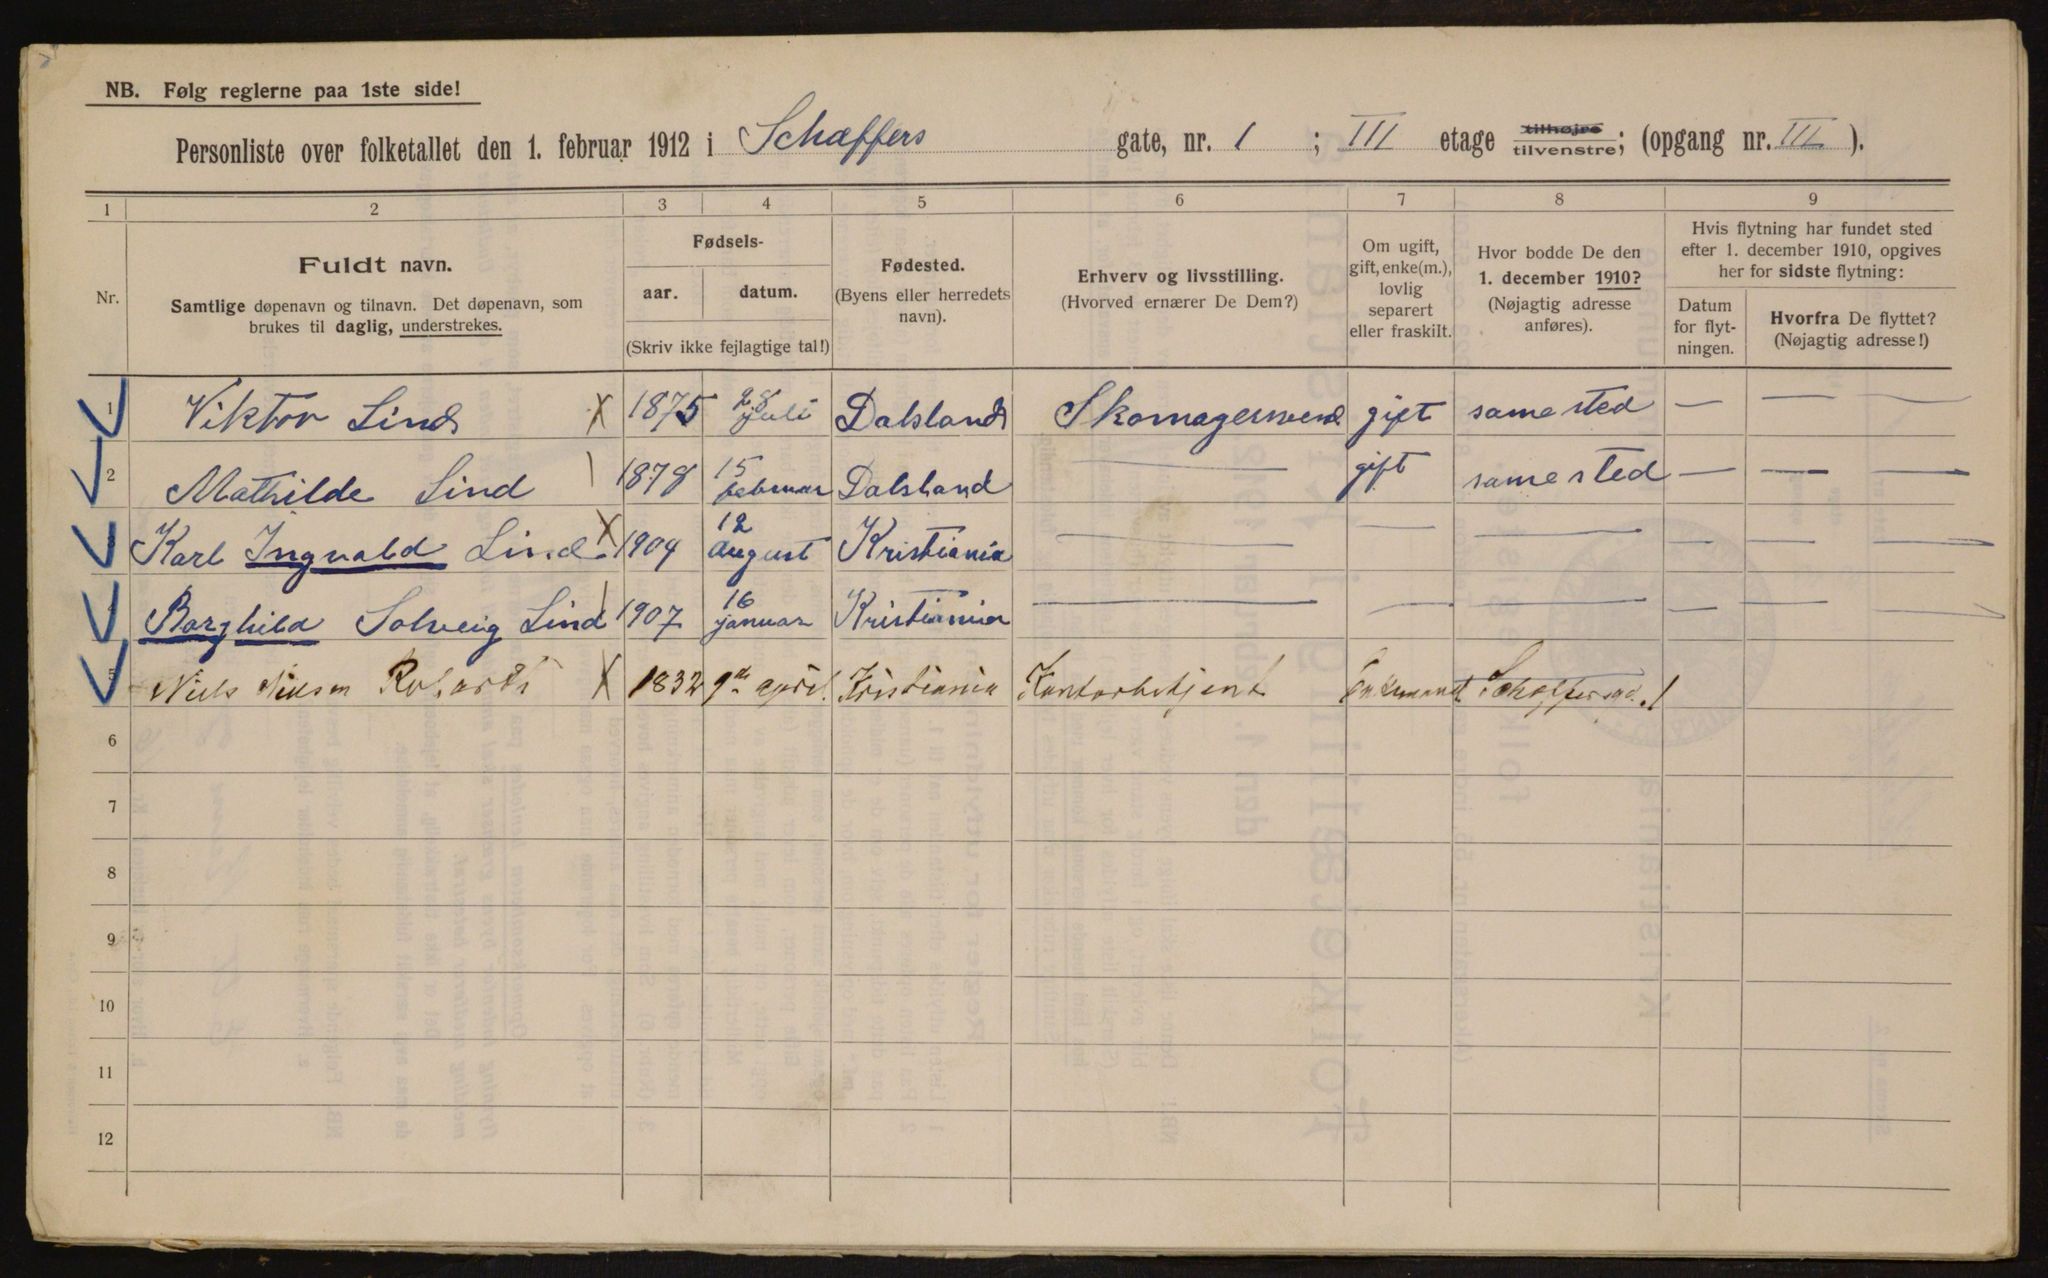 NB. Følg reglerne paa 1ste side!
Personliste over folketallet den 1. februar 1912 i Schæffers gate, nr. 1 ; III etage tilhøjre tilvenstre; (opgang nr. III ).
1 2 3 4 5 6 7 8 9
Nr.
Fuldt navn.
Samtlige døpenavn og tilnavn. Det døpenavn, som
brukes til daglig, understrekes.
Fødsels-
aar. datum.
(Skriv ikke fejlagtige tal!)
Fødested.
(Byens eller herredets
navn).
Erhverv og livsstilling.
(Hvorved ernærer De Dem?)
Om ugift,
gift, enke(m.),
lovlig
separert
eller fraskilt.
Hvor bodde De den
1. december 1910?
(Nøjagtig adresse
anføres).
Hvis flytning har fundet sted
efter 1. december 1910, opgives
her for sidste flytning:
Datum
for flyt-
ningen.
Hvorfra De flyttet?
(Nøjagtig adresse!)
1 Viktor Lind 1875 28 juli Dalsland Skomagersvend gift samested — — —
2 Mathilde Lind 1878 15 februar Dalsland — gift samested — — —
3 Karl Ingvald Lind 1904 12 august Kristiania — — — — — —
4 Borghild Solveig Lind 1907 16 januar Kristiania — — — — — —
5 Niels Nielsen 1832 april Kristiania Kontorbetjent Enkemand 1
6
7
8
9
10
11
12